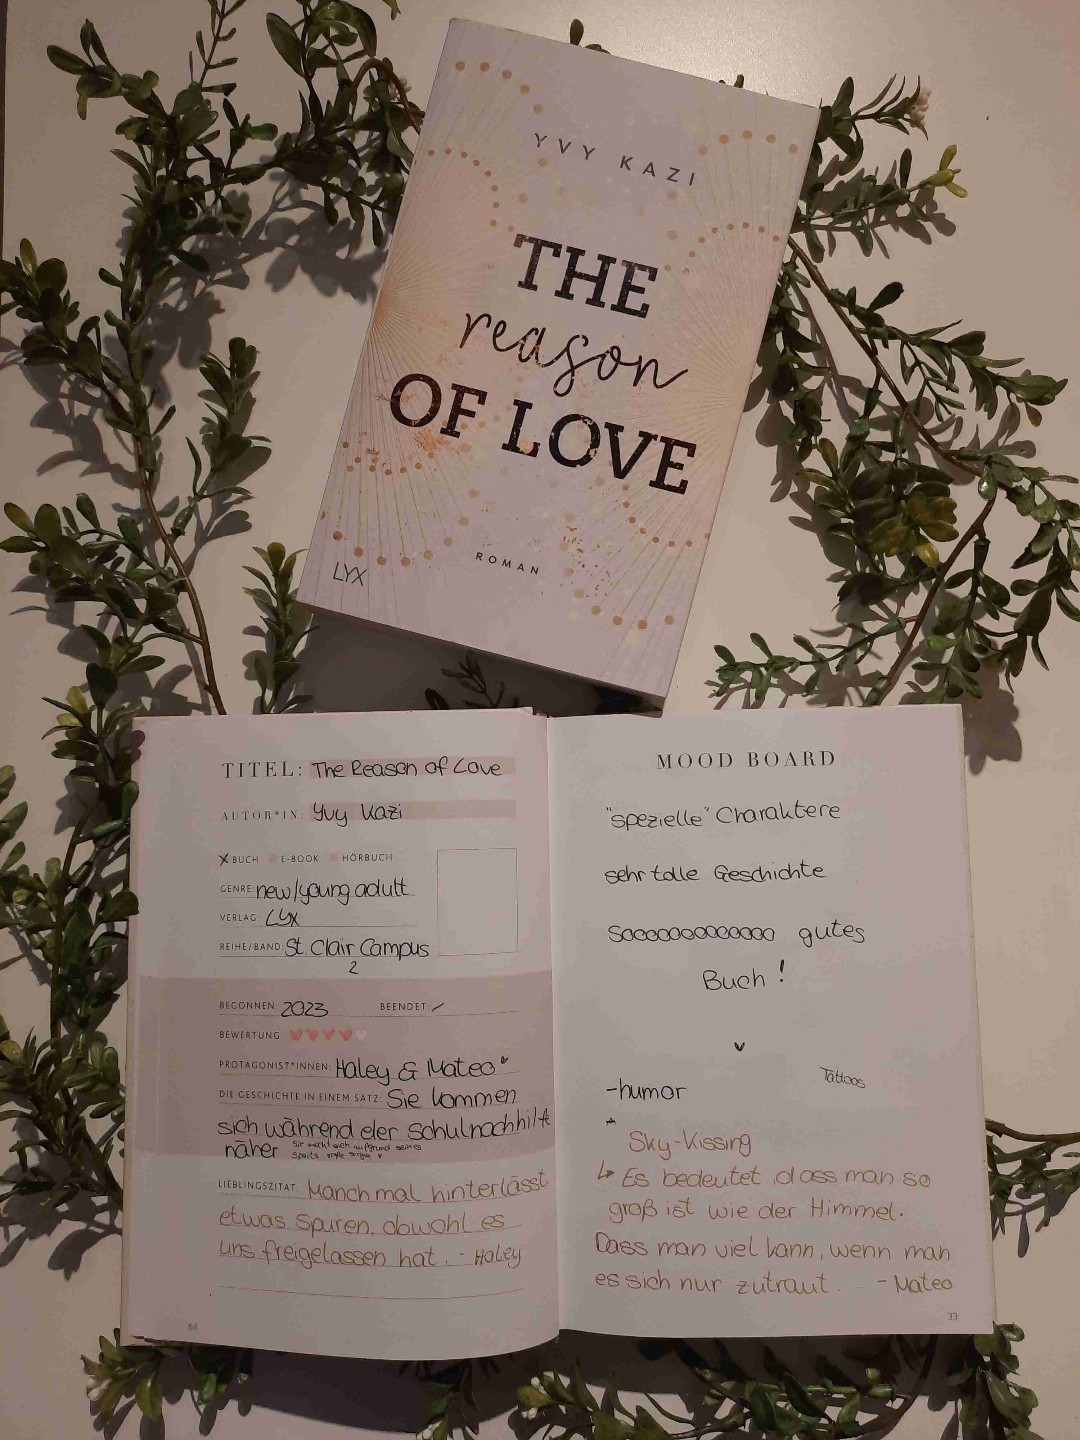 YVY KAZI
THE
reason
OF LOVE
ROMAN
LYX
TITEL: The Reason of Love
AUTOR*IN: Yvy Kazi
X BUCH E-BOOK HÖRBUCH
GENRE new/young adult
VERLAG: LYX
REIHE/BAND: St. Clair Campus
2
BEGONNEN: 2023 BEENDET: /
BEWERTUNG
PROTAGONIST*INNEN: Haley & Mateo
DIE GESCHICHTE IN EINEM SATZ: Sie kommen
sich während der Schulnachhilfe
näher Sie macht sich aufgrund seines
Sports große Sorgen
LIEBLINGSZITAT: Manchmal hinterlässt
etwas Spuren, obwohl es
uns freigelassen hat. - Haley
54
MOOD BOARD
"spezielle" Charaktere
sehr tolle Geschichte
Soooooooooooo gutes
Buch!
Tattoos
-humor
Sky-Kissing
↳ Es bedeutet, dass man so
groß ist wie der Himmel.
Dass man viel kann, wenn man
es sich nur zutraut. - Mateo
33